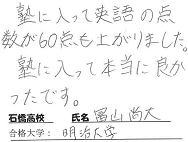 塾に入って英語の点
数が60点も上がりました。
塾に入って本当に良か
ったです。
石橋高校 氏名 冨山尚大
合格大学： 明治大学